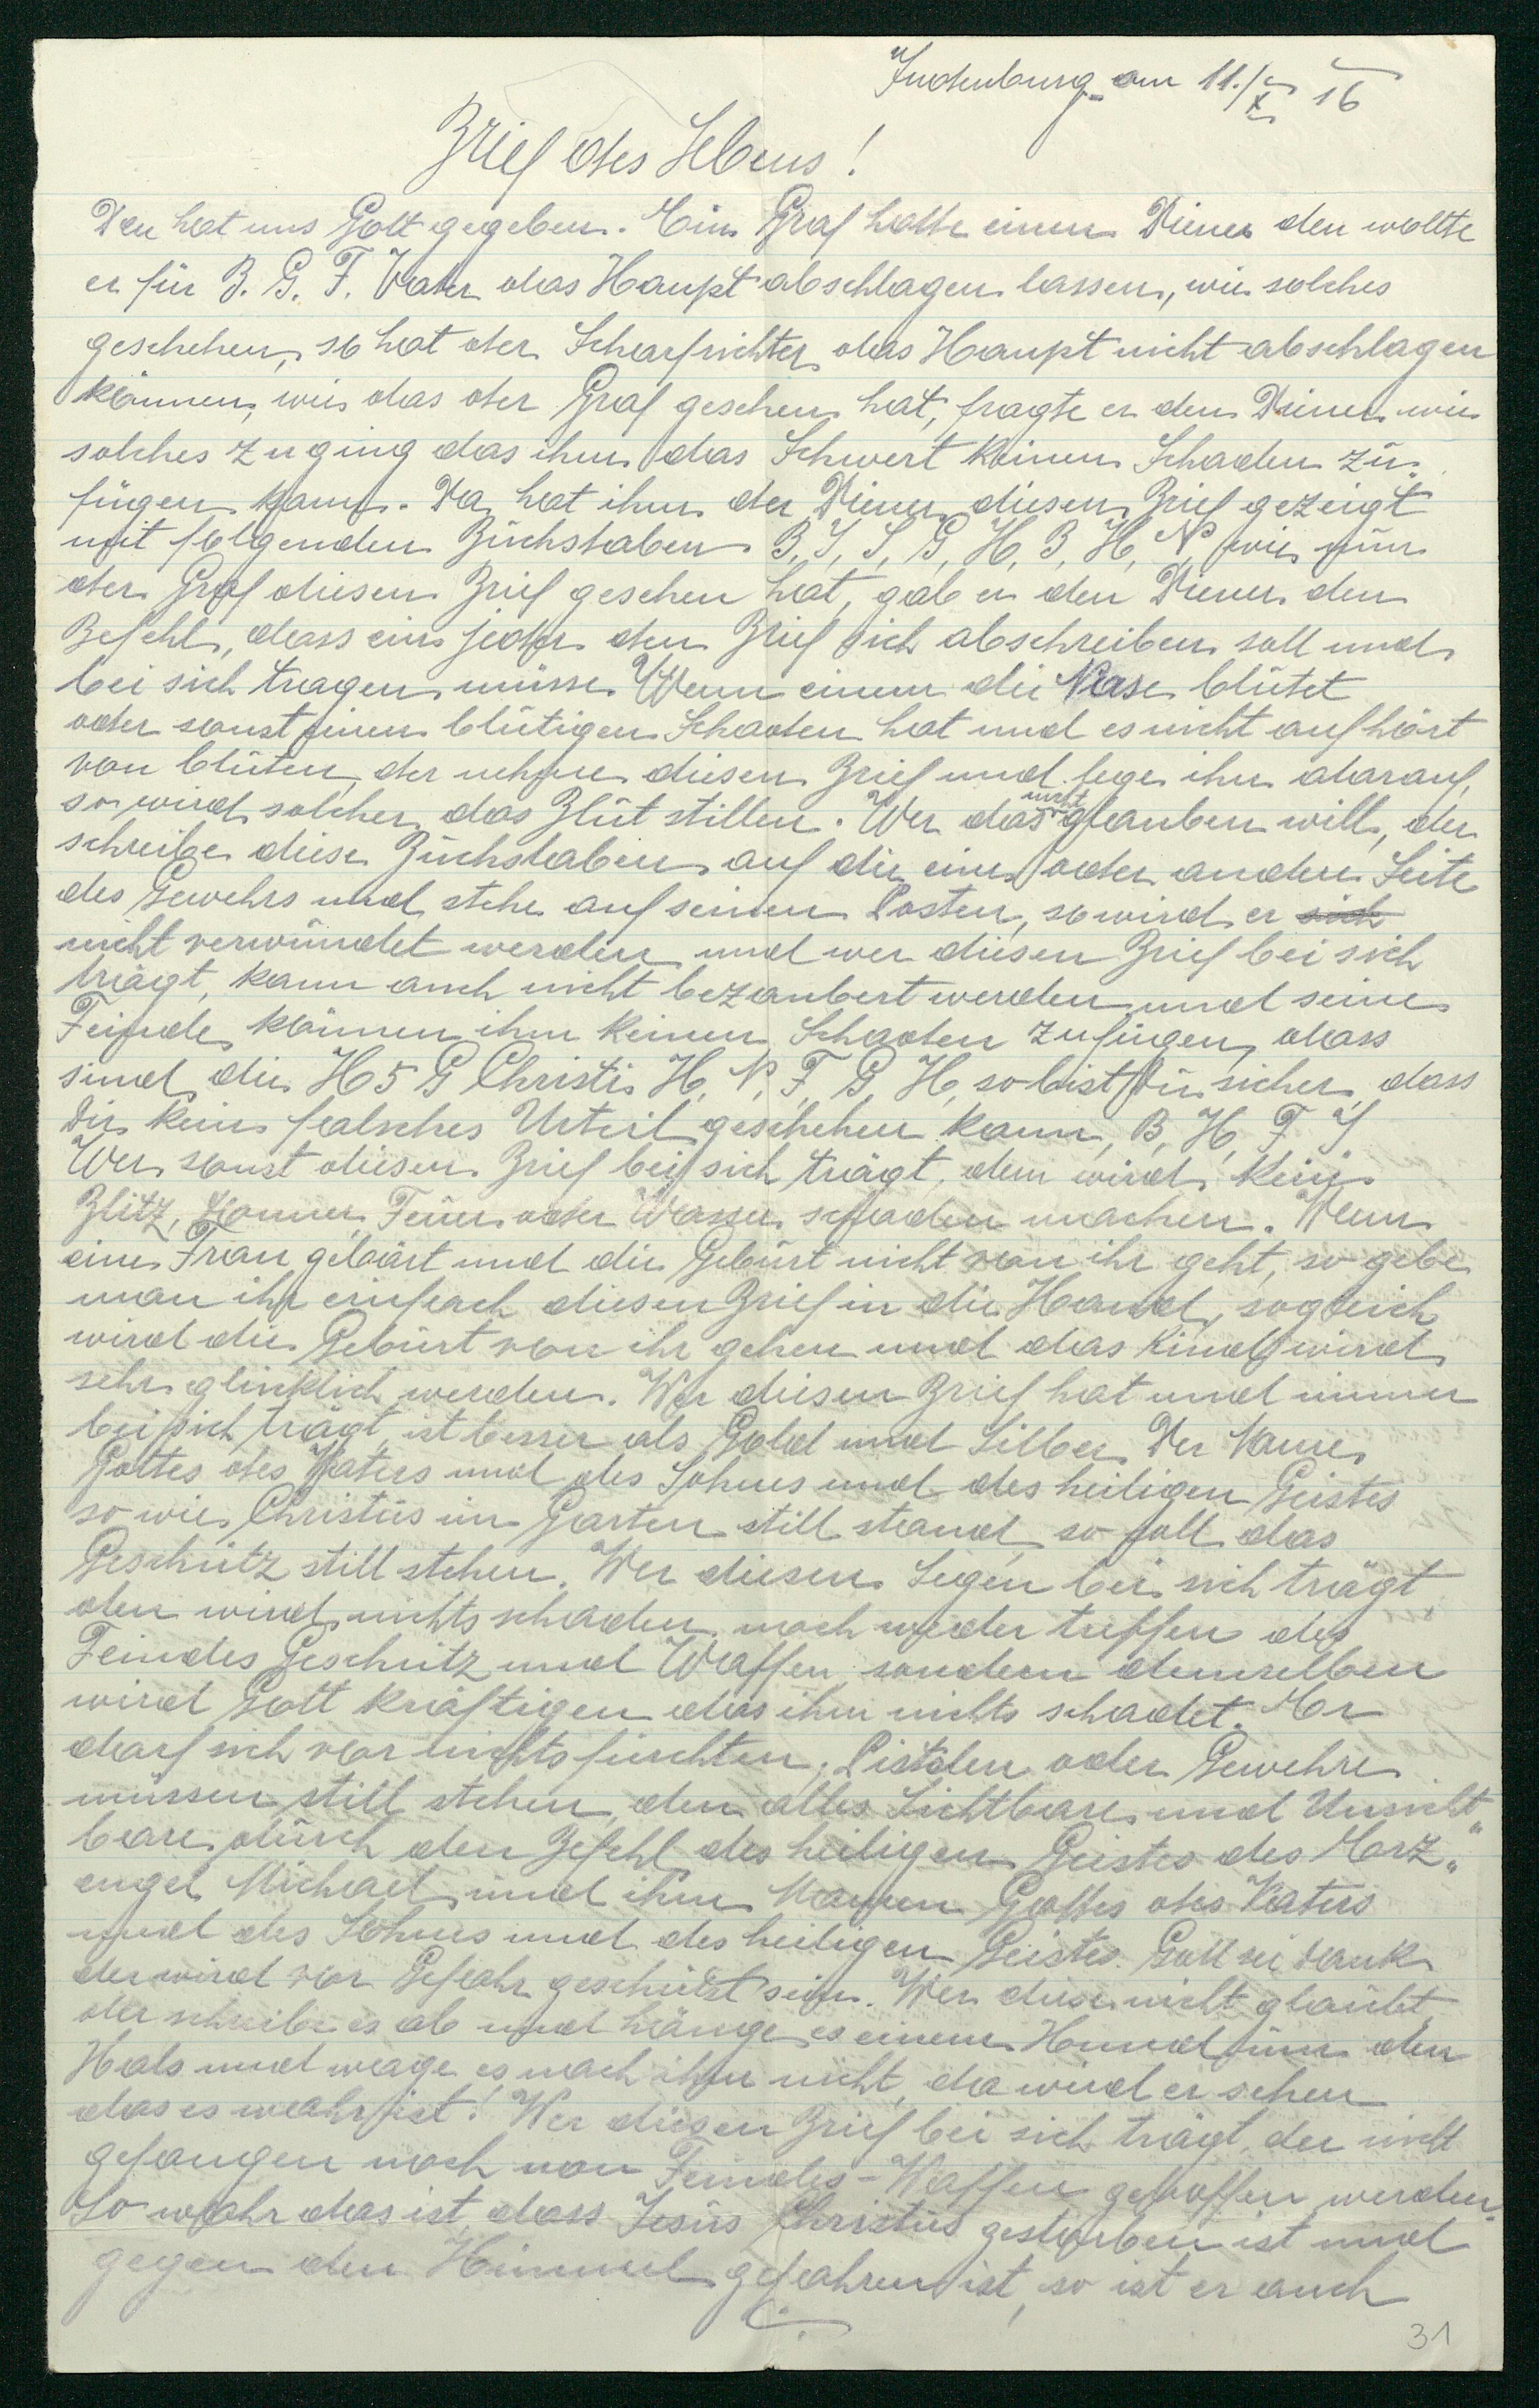 Judenburg am 11./X 16
Brief des Lebens!
Den hat uns Gott gegeben. Ein Graf hatte einen Diener den wollte
er für B. G. F. Vater das Haupt abschlagen lassen, wie solches
geschehen, so hat der Scharfrichter das Haupt nicht abschlagen
können, wie das der Graf gesehen hat, fragte er den Diener wie
solches zuging das ihm das Schwert keinen Schaden zu-
fügen kann. Da hat ihm der Diener diesen Brief gezeigt
mit folgenden Buchstaben B, I, S, G, H, B, H, N, wie nun
der Graf diesen Brief gesehen hat, gab er den Diener den
Befehl, dass ein jeder den Brief sich abschreiben soll und
bei sich tragen müsse. Wenn einem die Nase blutet
oder sonst einen blutigen Schaden hat und es nicht aufhört
von bluten, der nehme diesen Brief und lege ihn darauf,
so wird solcher das Blut stillen. Wer das nicht glauben will, der
schreibe diese Buchstaben auf die eine oder andere Seite
des Gewehrs und stehe auf seinen Posten, so wird er sich
nicht verwundet werden und wer diesen Brief bei sich
trägt, kann auch nicht bezaubert werden und seine
Feinde können ihm keinen Schaden zufügen, dass
sind die H 5 G Christi H, N, F, G, H, so bist Du sicher, dass
Dir kein falsches Urteil geschehen kann, B, H, F, I
Wer sonst diesen Brief bei sich trägt, dem wird kein
Blitz, Donner, Feuer oder Wasser schaden machen. Wenn
eine Frau gebärt und die Geburt nicht von ihr geht, so gebe
man ihr einfach diesen Brief in die Hand, sogleich
wird die Geburt von ihr gehen und das Kind wird
sehr glücklich werden. Wer diesen Brief hat und immer
bei sich trägt, ist besser als Gold und Silber. Der Name
Gottes des Vaters und des Sohnes und des heiligen Geistes
so wie Christus im Garten still stand, so soll das
Geschütz still stehen. Wer diesen Segen bei sich trägt
den wird nichts schaden, noch weder treffen des
Feindes Geschütz und Waffen, sondern demselben
wird Gott kräftigen das ihm nichts schadet. Er
darf sich vor nichts fürchten, Pistolen oder Gewehre
müssen still stehen, den alles Sichtbare und Unsicht"
bare durch den Befehl des heiligen Geistes des Erz"
engel Michael und ihm Namen Gottes des Vaters
und des Sohnes und des heiligen Geistes. Gott sei Dank
der wird vor Gefahr geschützt sein. Wer diese nicht glaubt,
der schreibe es ab und hänge es einem Hund um den
Hals und wage es nach ihm nicht, da wird er sehen
das es wahr ist! Wer diesen Brief bei sich trägt, der nicht
gefangen noch von Feindes-Waffen getroffen werden.
So wahr das ist, dass Jesus Christus gestorben ist und
gegen den Himmel gefahren ist, so ist er auch
31